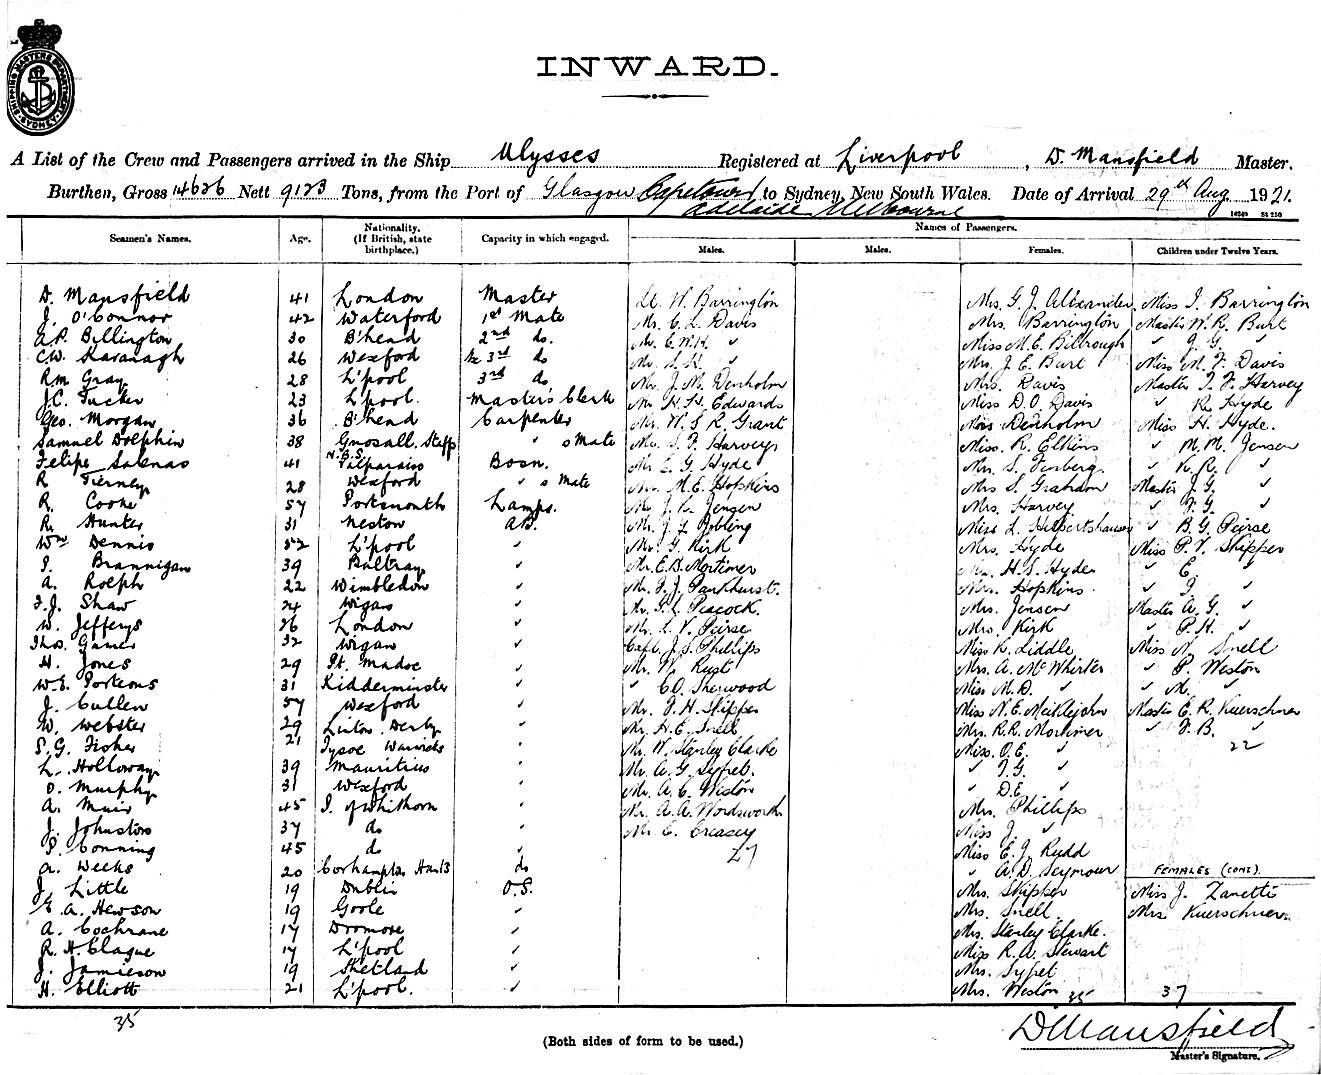 SHIPPING MASTERS DEPARTMENT SYDNEY
INWARD.
A List of the Crew and Passengers arrived in the Ship Ulysses Registered at Liverpool, D. Mansfield Master.
Burthen, Gross 14626 Nett 9123 Tons, from the Port of Glasgow Capetown to Sydney, New South Wales. Date of Arrival 29th Aug 1921.
Adelaide Melbourne
Seamen's Names. Age. Nationality. (If British, state birthplace.) Capacity in which engaged. Names of Passengers.
Males. Males. Females. Children under Twelve Years.
D. Mansfield 41 London Master Lt. W. Barrington Mrs. G. J. Alexander Miss I. Barrington
J. O'Connor 42 Waterford 1st Mate Mr. C. L. Davis Mrs. Barrington Master W. R. Burt
A.P. Billington 30 B'head 2nd do. Mr. E. W. H. " Miss M. E. Bilbrough " J. G. "
C.W. Kavanagh 26 Wexford 3rd do Mr. " Mrs. J. E. Burt Miss M. F. Davis
R.M. Gray 28 L'pool 3rd do Mr. J. M. Denholm Mrs. Davis Master T. F. Harvey
J.C. Tucker 23 L'pool. Master's Clerk Mr H. H. Edwards Miss D. O. Davis " R. Hyde
Geo. Morgan 36 B'head Carpenter Mr. W. S. R. Grant Miss Denholm Miss H. Hyde.
Samuel Dolphin 38 Gnosall. Staffs " s Mate Mr. S. F. Harvey Miss. R. Elkins " M. M. Jensen
Felipe Salenas 41 Valparaiso Bosn. Mr E. G. Hyde Mrs. S. Finberg. " K. R. "
R Tierney 28 Wexford " s Mate M. E. Hopkins Mrs S. Graham Master J. G. "
R. Cooke 57 Portsmouth Lamps. Mr J. Jensen Mrs. Harvey " F. G. "
R. Hunter 31 Neston AB. Mr. J. L. Jobling Miss L. Hilpertshauser " B. G. Peirse
Wm Dennis 52 L'pool " Mr. G. Kirk Mrs. Hyde Miss P. V. Skipper
Brannigan 39 Baltray " Mr. E. B. Mortimer H. S. Hyde " E. "
A. Rolph 22 Wimbledon " Mr. F. J. Parkhurst. Mrs. Hopkins. " "
F.J. Shaw 24 Wigan " Mr. Peacock. Mrs. Jensen Master A. G. "
W. Jefferys 26 London " Mr. L. V. Peirse Mrs. Kirk " P. H. "
Thos. Garner 32 Wigan " Capt. J. S. Phillips Miss K. Liddle Miss N. Snell
H. Jones 29 Pt. Madoc " Mr. W. Rust Mrs. A. McWhirter " P. Weston
W.E. Porteous 31 Kidderminster " " C.O. Sherwood Miss M. D. " " M. "
J. Cullen 57 Wexford " Mr. F. H. Skipper Miss N. E. Meiklejohn Master E. R. Kuerschner
W. Webster 29 Linton Derby " Mr. H. E. Snell Mrs. R. R. Mortimer " F. B. "
S. G. Fisher 21 Tysoe Warwicks " Mr. W. Stanley Clarke Miss. O. E. " 22
L. Holloway 39 Mauritius " Mr. A. G. Syfret. " I. G. "
D. Murphy 31 Wexford " Mr. A. C. Weston " D. E. "
A. Muir 45 I. of Whithorn " Mr. A. A. Wordsworth Mrs. Phillips
J. Johnston 37 do " Mr. C. Creasey Miss J. "
P. Conning 45 do " 27 Miss E. J. Rudd
A. Weeks 20 Corhampton Hants do " A. D. Seymour FEMALES (CONT).
J. Little 19 Dublin O.S. Mrs. Skipper Miss J. Zanetti
E. A. Hewson 19 Goole " Mrs. Snell Mrs Kuerschner.
A. Cochrane 17 Dromore " Mrs. Stanley Clarke.
R. H. Clague 17 L'pool " Miss R. A. Stewart
J. Jamieson 19 Shetland " Mrs. Syfret
H. Elliott 21 L'pool. " Mrs. Weston 35 37
35
(Both sides of form to be used.)
D Mansfield
Master's Signature.